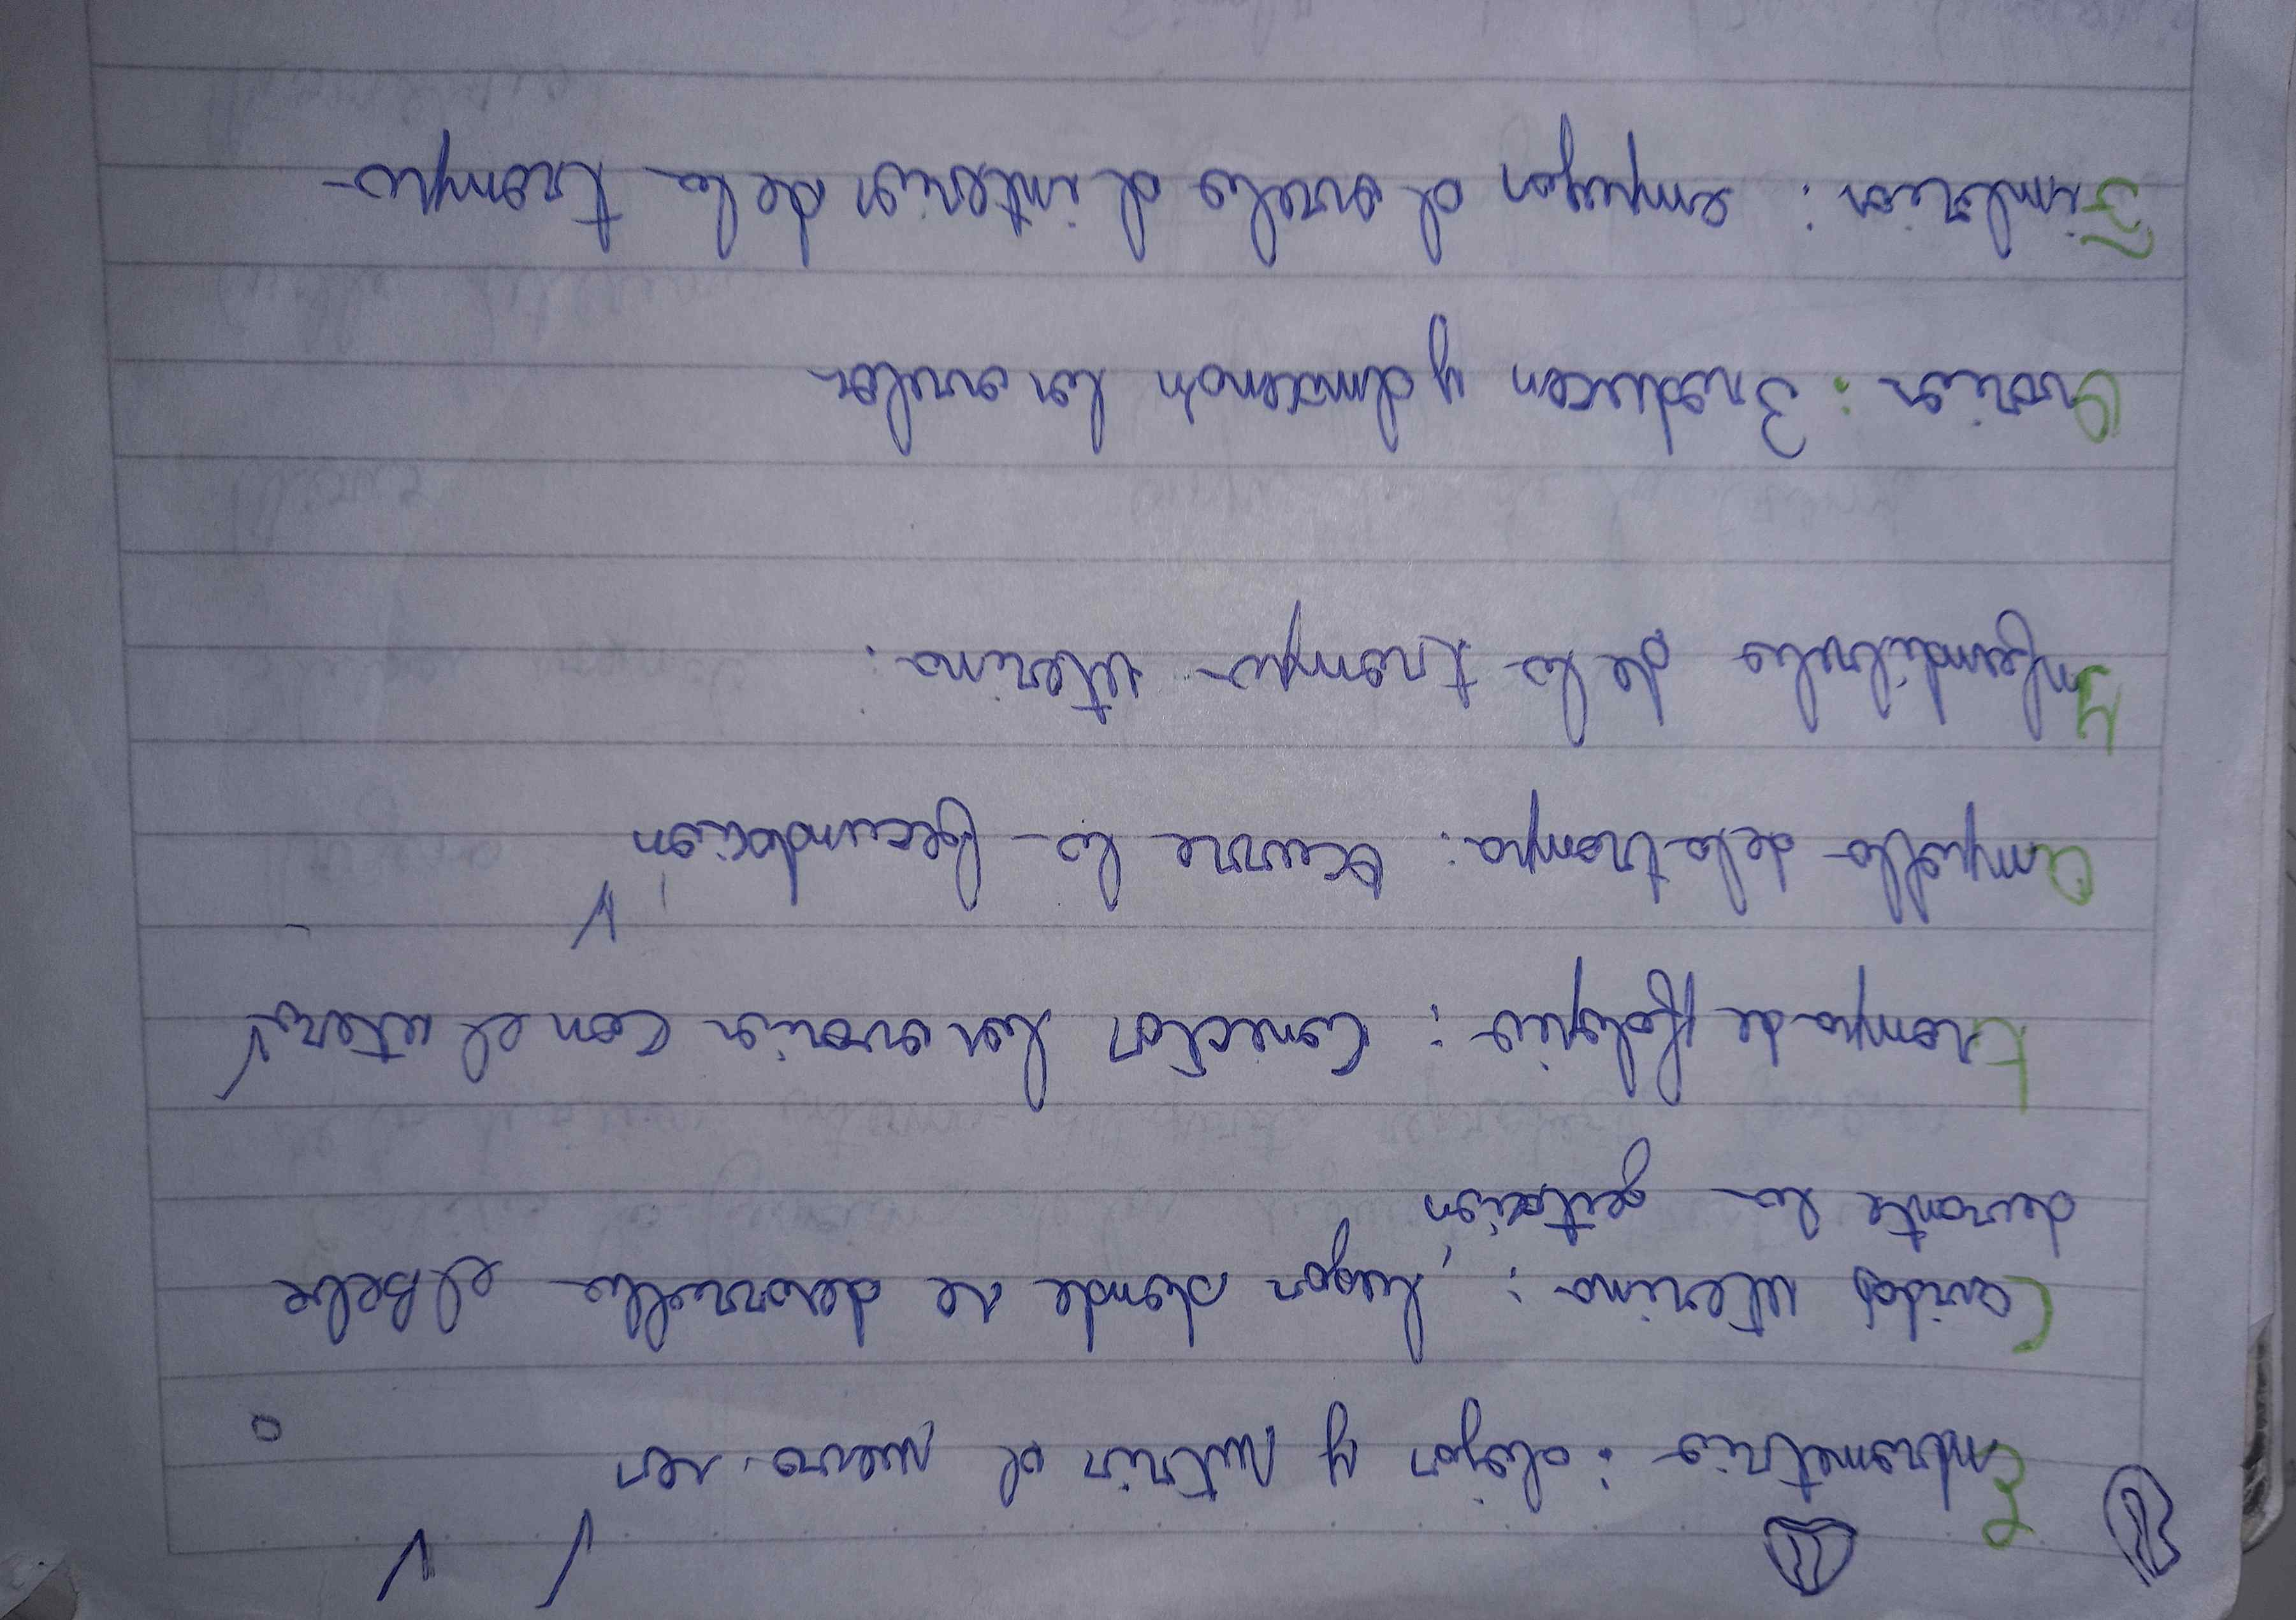 Endometrio : alojar y nutrir al nuevo ser
Cavidad uterina : lugar donde se desarrolla el Bebe
durante la gestación
Trompa de falopio : conectan los ovarios con el utero
Ampolla de la trompa : ocurre la fecundación
Infundibulo de la trompa uterina :
Ovarios : Producen y almacenan los ovulos
Fimbrias : empujan al ovulo al interior de la trompa